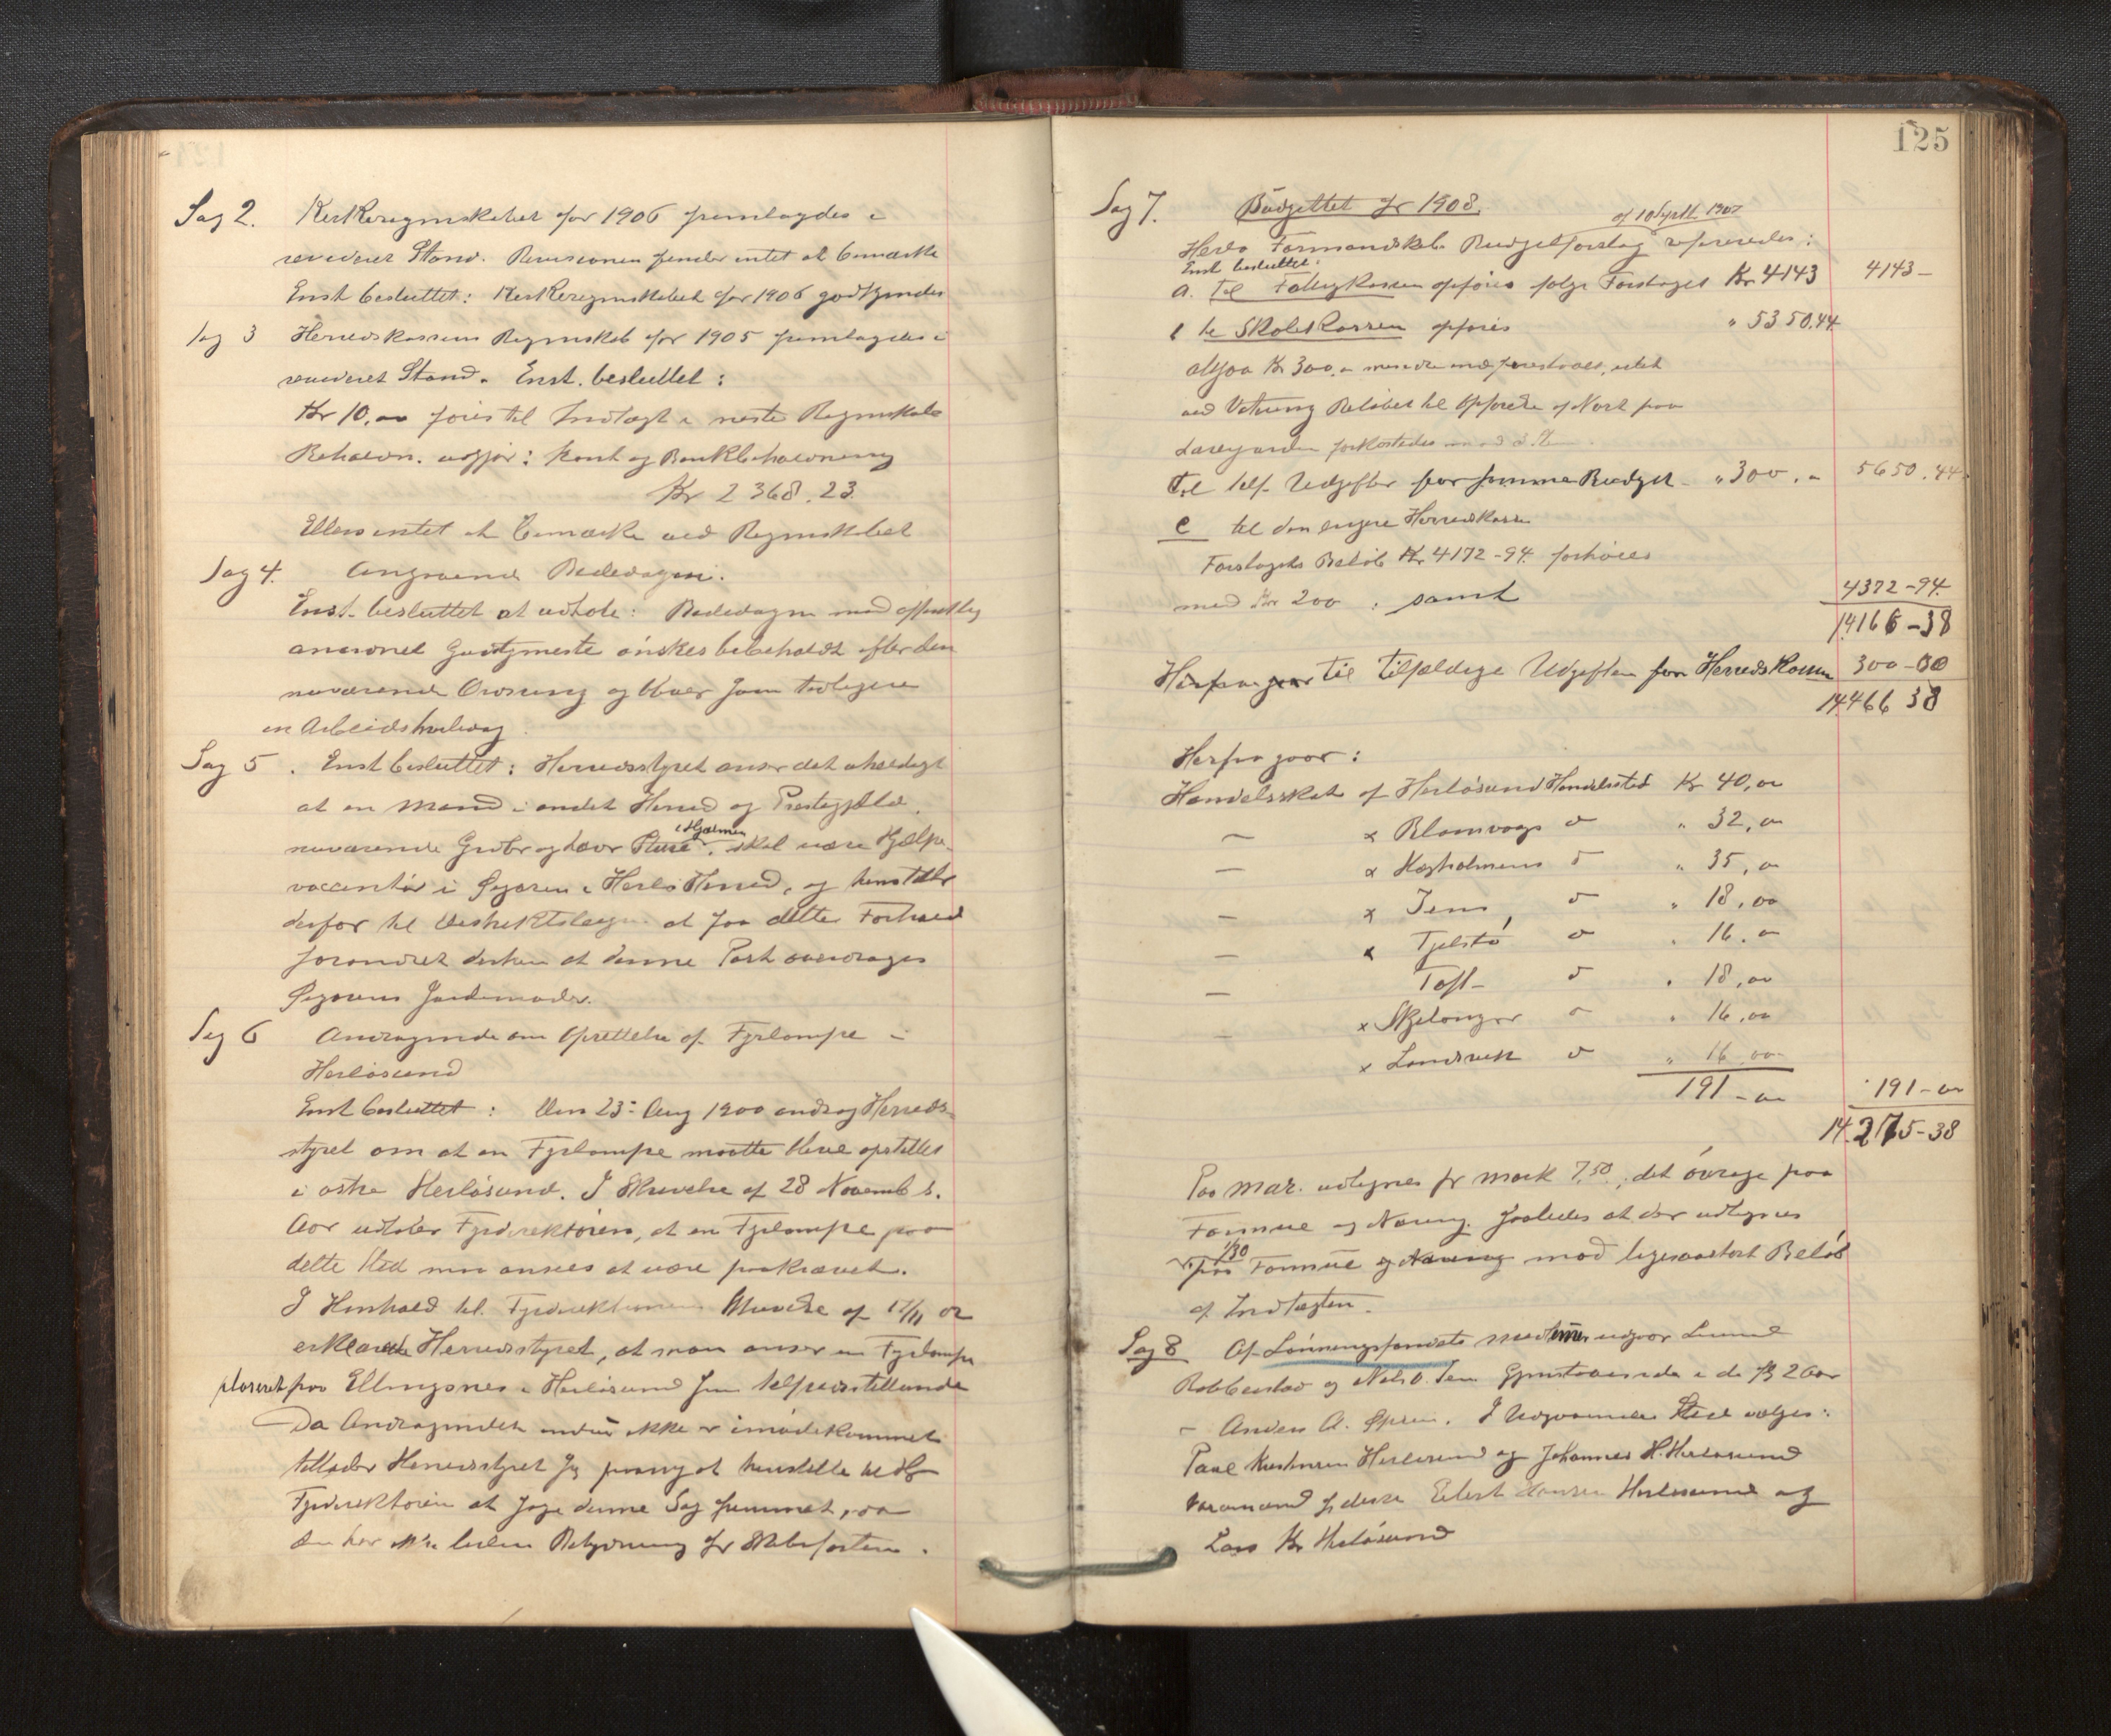 Sag 2. Kirkeregnskabet for 1906 fremlagdes i
revideret Stand. Revisionen finder intet at bemærke
Enst besluttet: Kirkeregnskabet for 1906 godkjendes
Sag 3 Herredskassens Regnskab for 1905 fremlagdes i
revideret Stand. Enst. besluttet:
Kr 10,00 føres til Indtægt i neste Regnskab
Beholdn. udgjør: kont og Bankbeholdning
Kr 2368.23
Ellers intet at bemærke ved Regnskabet
Sag 4. Angaaende Bededagen.
Enst. besluttet at udtale: Bededagen med offentlig
anordnet Gudstjeneste ønskes bibeholdt efter den
nuværende Ordning og bliver som tidligere
en Arbeidshviledag.
Sag 5. Enst besluttet: Herredsstyret anser det uheldigt
at en Mand i andet Herred og Prestegjæld,
nuværende Grdbr og Lærer i Hjælmen skal være Hjælpe-
vaccinatør i Øygaren i Herlø Herred, og henstiller
derfor til Distriktslægen at faa dette Forhold
forandret derhen at denne Post overdrages
Øygarens Jordemoder.
Sag 6 Andragende om Oprettelse af Fyrlampe i
Herløsund
Enst besluttet: Den 23de Aug 1900 androg Herreds-
styret om at en Fyrlampe maatte blive opstillet
i østre Herløsund. I Skrivelse af 28 Novemb s.
Aar udtaler Fyrdirektøren, at en Fyrlampe paa
dette Sted maa ansees at være paakrævet.
I Henhold til Fyrdirektørens Skrivelse af 17/11 02
erklærede Herredsstyret, at man anser en Fyrlampe
plaseret paa Ellingsnes i Herløsund som tilfredsstillende
Da Andragendet endnu ikke er imødekommet
tillader Herredsstyret sig paany at henstille til Hr
Fyrdirektøren at søge denne Sag fremmet, da
den har ikke liden Betydning for Skibsfarten.
125
Sag 7. Budgettet for 1908.
af 10 Septb 1907
Herlø Formandskabs Budgetforslag refereredes:
Enst besluttet:
a. Til Fattigkassen opføres ifølge Forslaget Kr 4143 4143 –
til Skolekassen opføres " 5350.44
altsaa Kr 300,00 mindre end foreslaaet, idet
ved Vedtægt Beløbet til Opførelse af Nøst paa
Til tilf. Udgifter for samme Budget " 300.00 5650.44
c til den engere Herredskasse
Forslagets Beløb Kr 4172-94 forhøies
med Kr 200 : samt 4372-94
14166-38
til tilfældige Udgifter for Herredskassen 300-00
14466 38
Herfra gaar:
Handelsskat af Herløsund Handelssted Kr 40,00
— x Blomvaag do " 32,00
— x Hægholmens do " 35,00
— x Jens, do " 18,00
— x Tjelstø do " 16.00
— Toft do " 18,00
— x Skjelanger do " 16,00
x Landsvik do " 16 00
191-00 191-00
14.275-38
Paa Matr. udlignes pr mark 7,50, det øvrige paa
Formue og Næring. saaledes at der udlignes
1/30 paa Formue og Næring mod ligesaastort Beløb
af Indtægten.
Sag 8 Af Lønningsfondets medlemmer udgaar
Robberstad og Nils O. Jen i de første 2 Aar
– Anders A. I Udgaaendes Sted vælges:
Paul Kristensen Herløsund og Johannes H. Herløsund
Varamænd for disse Eilert Hansen Herløsund og
Lars Kr Herløsund